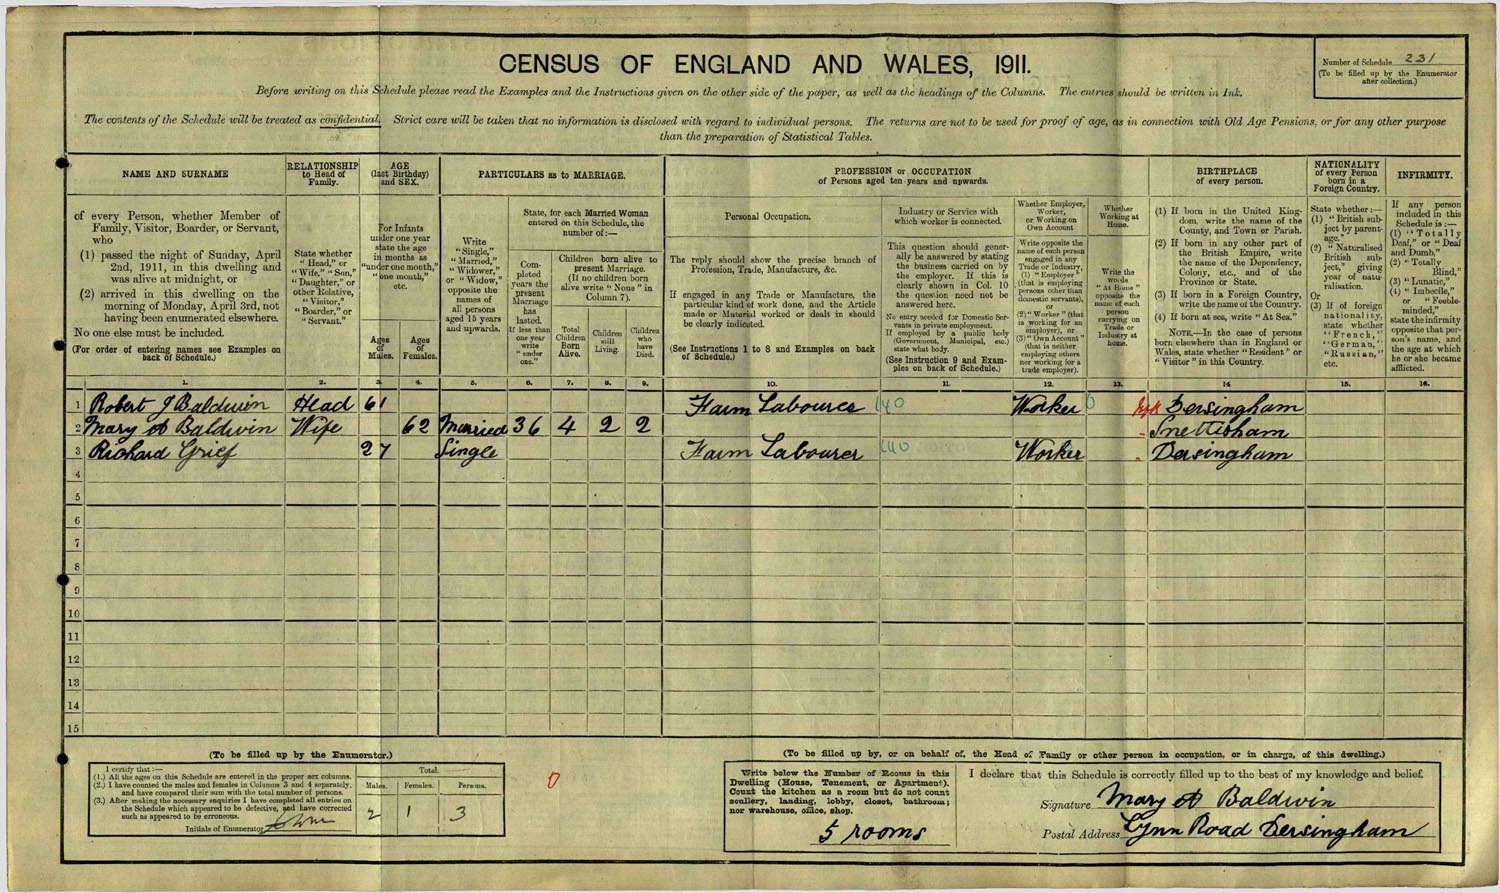 CENSUS OF ENGLAND AND WALES, 1911.
Number of Schedule 231
(To be filled up by the Enumerator
after collection.)
Before writing on this Schedule please read the Examples and the Instructions given on the other side of the paper, as well as the headings of the Columns. The entries should be written in Ink.
The contents of the Schedule will be treated as confidential. Strict care will be taken that no information is disclosed with regard to individual persons. The returns are not to be used for proof of age, as in connection with Old Age Pensions, or for any other purpose
than the preparation of Statistical Tables.
NAME AND SURNAME
RELATIONSHIP
to Head of
Family.
AGE
(last Birthday)
and SEX.
PARTICULARS as to MARRIAGE.
PROFESSION or OCCUPATION
of Persons aged ten years and upwards.
BIRTHPLACE
of every person.
NATIONALITY
of every Person
born in a
Foreign Country.
INFIRMITY.
of every Person, whether Member of
Family, Visitor, Boarder, or Servant,
who
(1) passed the night of Sunday, April
2nd, 1911, in this dwelling and
was alive at midnight, or
(2) arrived in this dwelling on the
morning of Monday, April 3rd, not
having been enumerated elsewhere.
No one else must be included.
(For order of entering names see Examples on
back of Schedule.)
State whether
"Head," or
"Wife," "Son,"
"Daughter," or
other Relative,
"Visitor,"
"Boarder," or
"Servant."
For Infants
under one year
state the age
in months as
"under one month,"
"one month,"
etc.
Ages
of
Males.
Ages
of
Females.
Write
"Single,"
"Married,"
"Widower,"
or "Widow,"
opposite the
names of
all persons
aged 15 years
and upwards.
State, for each Married Woman
entered on this Schedule, the
number of:—
Completed
years the
present
Marriage
has
lasted.
If less than
one year
write
"under
one."
Children born alive to
present Marriage.
(If no children born
alive write "None" in
Column 7).
Total
Children
Born
Alive.
Children
still
Living.
Children
who
have
Died.
Personal Occupation.
The reply should show the precise branch of
Profession, Trade, Manufacture, &c.
If engaged in any Trade or Manufacture, the
particular kind of work done, and the Article
made or Material worked or dealt in should
be clearly indicated.
(See Instructions 1 to 8 and Examples on back
of Schedule.)
Industry or Service with
which worker is connected.
This question should gener-
ally be answered by stating
the business carried on by
the employer. If this is
clearly shown in Col. 10
the question need not be
answered here.
No entry needed for Domestic Ser-
vants in private employment.
If employed by a public body
(Government, Municipal, etc.)
state what body.
(See Instruction 9 and Exam-
ples on back of Schedule.)
Whether Employer,
Worker,
or Working on
Own Account
Write opposite the
name of each person
engaged in any
Trade or Industry,
(1) "Employer"
(that is employing
persons other than
domestic servants),
or
(2) "Worker" (that
is working for an
employer), or
(3) "Own Account"
(that is neither
employing others
nor working for a
trade employer).
Whether
Working at
Home.
Write the
words
"At Home"
opposite the
name of each
person
carrying on
Trade or
Industry at
home.
(1) If born in the United King-
dom, write the name of the
County, and Town or Parish.
(2) If born in any other part of
the British Empire, write
the name of the Dependency,
Colony, etc., and of the
Province or State.
(3) If born in a Foreign Country,
write the name of the Country.
(4) If born at sea, write "At Sea."
NOTE.—In the case of persons
born elsewhere than in England or
Wales, state whether "Resident" or
"Visitor" in this Country.
State whether:—
(1) "British sub-
ject by parent-
age."
(2) "Naturalised
British sub-
ject," giving
year of natu-
ralisation.
Or
(3) If of foreign
nationality,
state whether
"French,"
"German,"
"Russian,"
etc.
If any person
included in this
Schedule is:—
(1) "Totally
Deaf," or "Deaf
and Dumb,"
(2) "Totally
Blind,"
(3) "Lunatic,"
(4) "Imbecile,"
or "Feeble-
minded,"
state the infirmity
opposite that per-
son's name, and
the age at which
he or she became
afflicted.
1. 2. 3. 4. 5. 6. 7. 8. 9. 10. 11. 12. 13. 14 15. 16.
1 Robert J Baldwin Head 61 Farm Labourer 140 Worker 0 Nfk Dersingham
2 Mary A Baldwin Wife 62 Married 36 4 2 2 Snettisham
3 Richard Grief 27 Single Farm Labourer 140 Worker Dersingham
4
5
6
7
8
9
10
11
12
13
14
15
(To be filled up by the Enumerator.)
I certify that:—
(1.) All the ages on this Schedule are entered in the proper sex columns.
(2.) I have counted the males and females in Columns 3 and 4 separately,
and have compared their sum with the total number of persons.
(3.) After making the necessary enquiries I have completed all entries on
the Schedule which appeared to be defective, and have corrected
such as appeared to be erroneous.
Initials of Enumerator
Total.
Males. Females. Persons.
2 1 3
0
(To be filled up by, or on behalf of, the Head of Family or other person in occupation, or in charge, of this dwelling.)
Write below the Number of Rooms in this
Dwelling (House, Tenement, or Apartment).
Count the kitchen as a room but do not count
scullery, landing, lobby, closet, bathroom;
nor warehouse, office, shop.
5 rooms
I declare that this Schedule is correctly filled up to the best of my knowledge and belief.
Signature Mary A Baldwin
Postal Address Lynn Road Dersingham